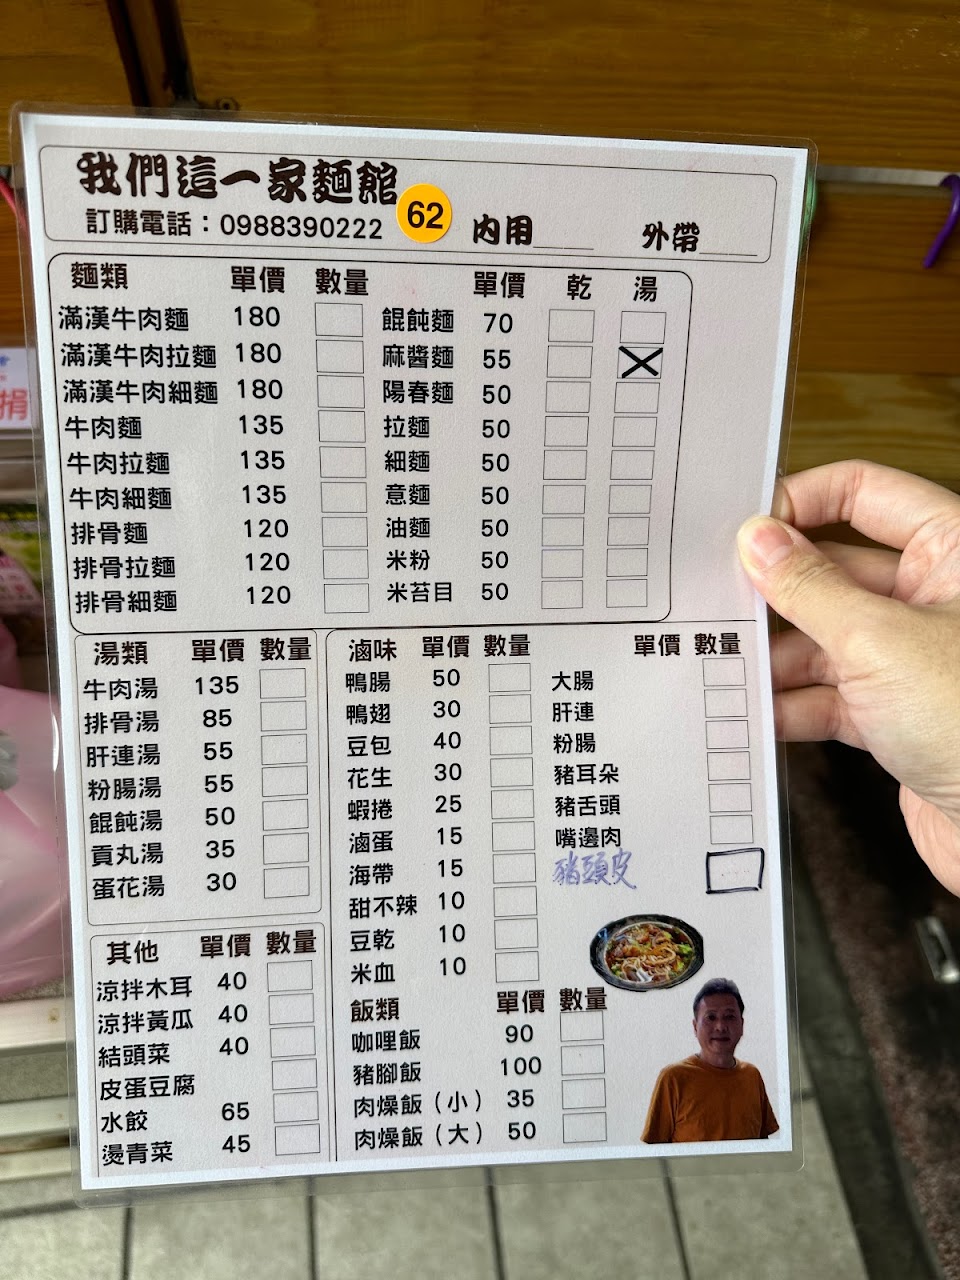 我們這一家麵館
訂購電話：0988390222 62 內用____ 外帶____
麵類 單價 數量 單價 乾 湯
滿漢牛肉麵 180 餛飩麵 70
滿漢牛肉拉麵 180 麻醬麵 55
滿漢牛肉細麵 180 陽春麵 50
牛肉麵 135 拉麵 50
牛肉拉麵 135 細麵 50
牛肉細麵 135 意麵 50
排骨麵 120 油麵 50
排骨拉麵 120 米粉 50
排骨細麵 120 米苔目 50
湯類 單價 數量
牛肉湯 135
排骨湯 85
肝連湯 55
粉腸湯 55
餛飩湯 50
貢丸湯 35
蛋花湯 30
其他 單價 數量
涼拌木耳 40
涼拌黃瓜 40
結頭菜 40
皮蛋豆腐
水餃 65
燙青菜 45
滷味 單價 數量 單價 數量
鴨腸 50 大腸
鴨翅 30 肝連
豆包 40 粉腸
花生 30 豬耳朵
蝦捲 25 豬舌頭
滷蛋 15 嘴邊肉
海帶 15 豬頭皮
甜不辣 10
豆乾 10
米血 10
飯類 單價 數量
咖哩飯 90
豬腳飯 100
肉燥飯（小） 35
肉燥飯（大） 50
捐